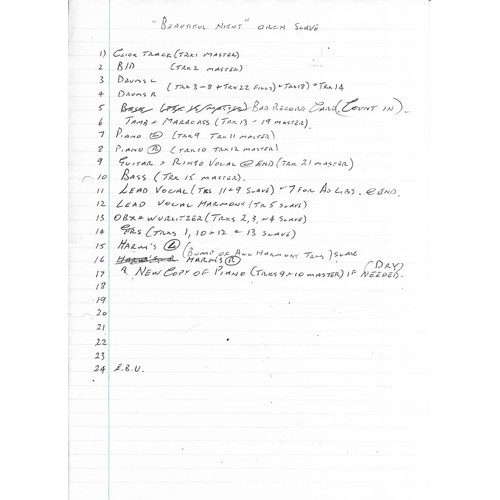 "BEAUTIFUL NIGHT" ORCH SLAVE
1) CLICK TRACK (TRK1 MASTER)
2 B/D (TRK2 MASTER)
3 DRUMS L
4 DRUMS R (TRK 3-8 + TRK22 FILLS) + TRK18) + TRK14
5 BAD RECORD CARD (COUNT IN).
6 TAMB + MARACASS (TRK 13 - 19 MASTER).
7 PIANO (L) (TRK9 TRK11 MASTER)
8 PIANO (R) (TRK10 TRK12 MASTER)
9 GUITAR + RINGO VOCAL @ END (TRK 21 MASTER)
10 BASS (TRK 15 MASTER).
11 LEAD VOCAL (TKS 11 + 9 SLAVE) + 7 FOR AD LIBS. @ END.
12 LEAD VOCAL HARMONY (TR 5 SLAVE)
13 OBX + WURLITZER (TRKS 2, 3, + 4 SLAVE)
14 GTRS (TRKS 1, 10 + 12 + 13 SLAVE)
15 HARM'S (L) (BUMP OF ALL HARMONY TRKS) SLAVE
16 HARM'S (R)
17 NEW COPY OF PIANO (TRKS 9 + 10 MASTER) IF NEEDED. (DRY)
18
19
20
21
22
23
24 E.B.U.